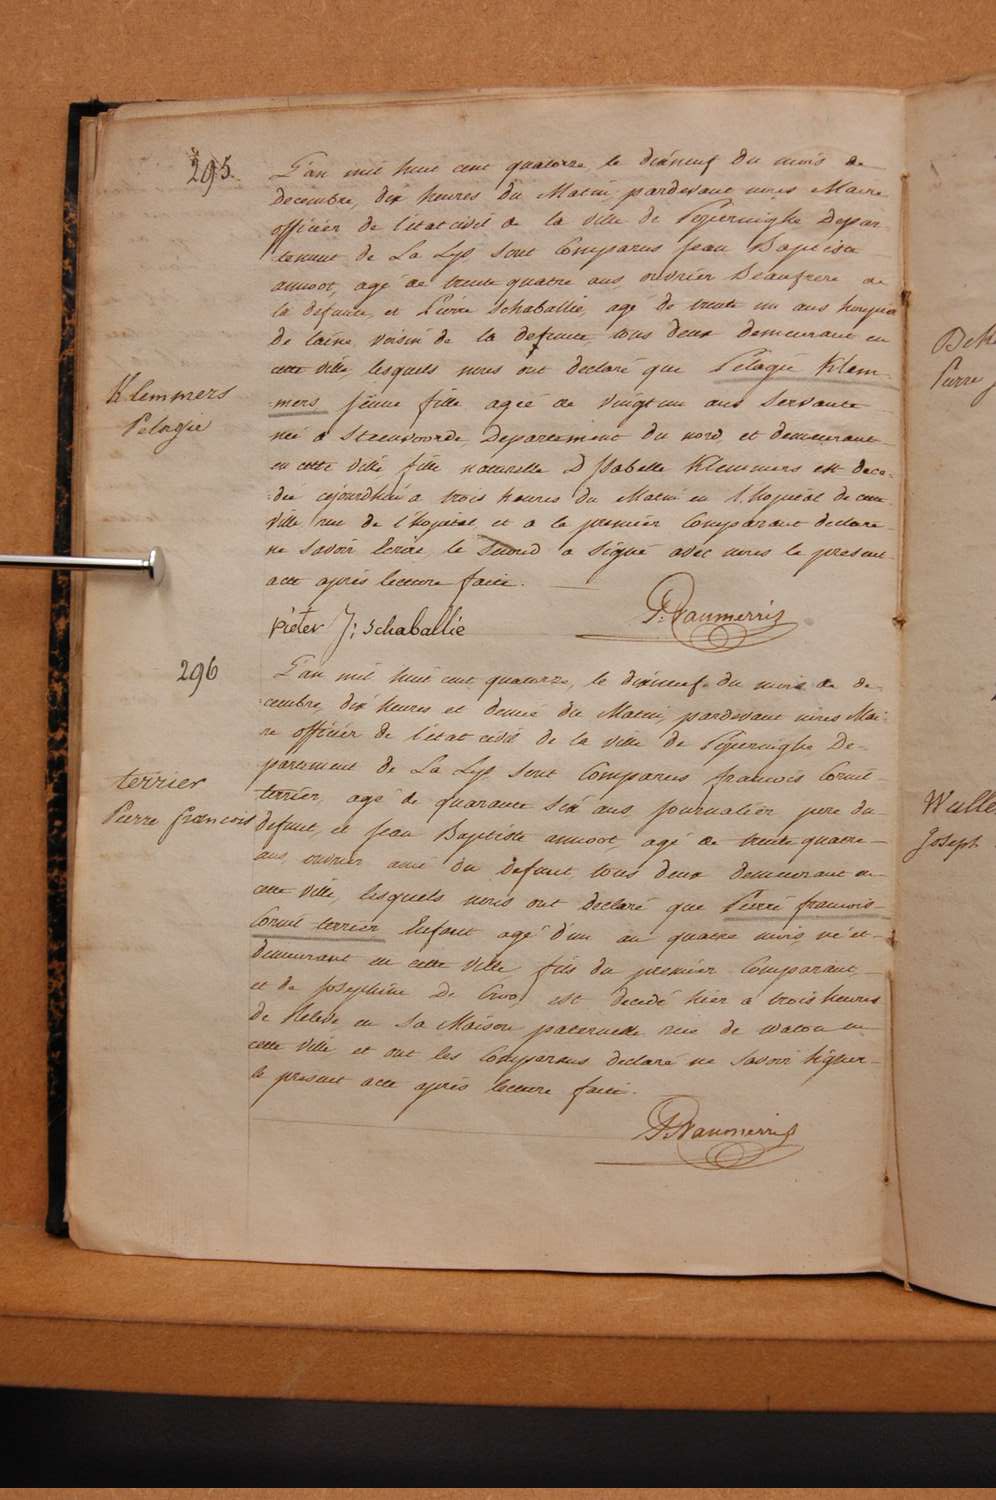 295.
L'an mil huit cent quatorze, le dixneuf du mois de
decembre, dix heures du Matin, pardevant nous Maire
officier de l'état civil de la ville de Poperinghe Depar-
tement de La Lys sont Comparus Jean Baptiste
annoot, agé de trente quatre ans, ouvrier Beaufrere de
la defunte, et Pierre Schaballie, agé de trente un ans
de laine voisin de la defunte, tous deux demeurant en
cette ville, lesquels nous ont declaré que Pelagie Klem-
mers jeune fille agée de vingt un ans Servante
née à Steenvoorde, Departement du nord, et demeurant
en cette ville fille naturelle D'Isabelle Klemmers est dece-
dée cejourdhui à trois heures du Matin en l'hopital de cette
ville rue de l'hopital, et a le premier Comparant declaré
ne savoir Ecrire le second a signé avec nous le present
acte après lecture faite.
Klemmers
Pelagie
Pieter J: Schaballie
296
L'an mil huit cent quatorze, le dixneuf du mois de de-
cembre, dix heures et demie du Matin, pardevant nous Mai-
re officier de l'état civil de la ville de Poperinghe De-
partement de La Lys sont Comparus francois Cornil
terrier, agé de quarante six ans, journalier pere du
defunt, et Jean Baptiste annoot, agé de trente quatre
ans, ouvrier ami du defunt, tous deux demeurant en
cette ville, lesquels nous ont declaré que Pierre francois
Cornil terrier Enfant agé d'un an quatre mois né et
demeurant en cette ville, fils du premier Comparant
et de Josephine De Croo, est decedé hier à trois heures
de Relevé en Sa Maison paternelle rue de watou en
cette ville et ont les Comparans declaré ne savoir signer
le present acte après lecture faite.
terrier
Pierre francois
Pierre
Joseph